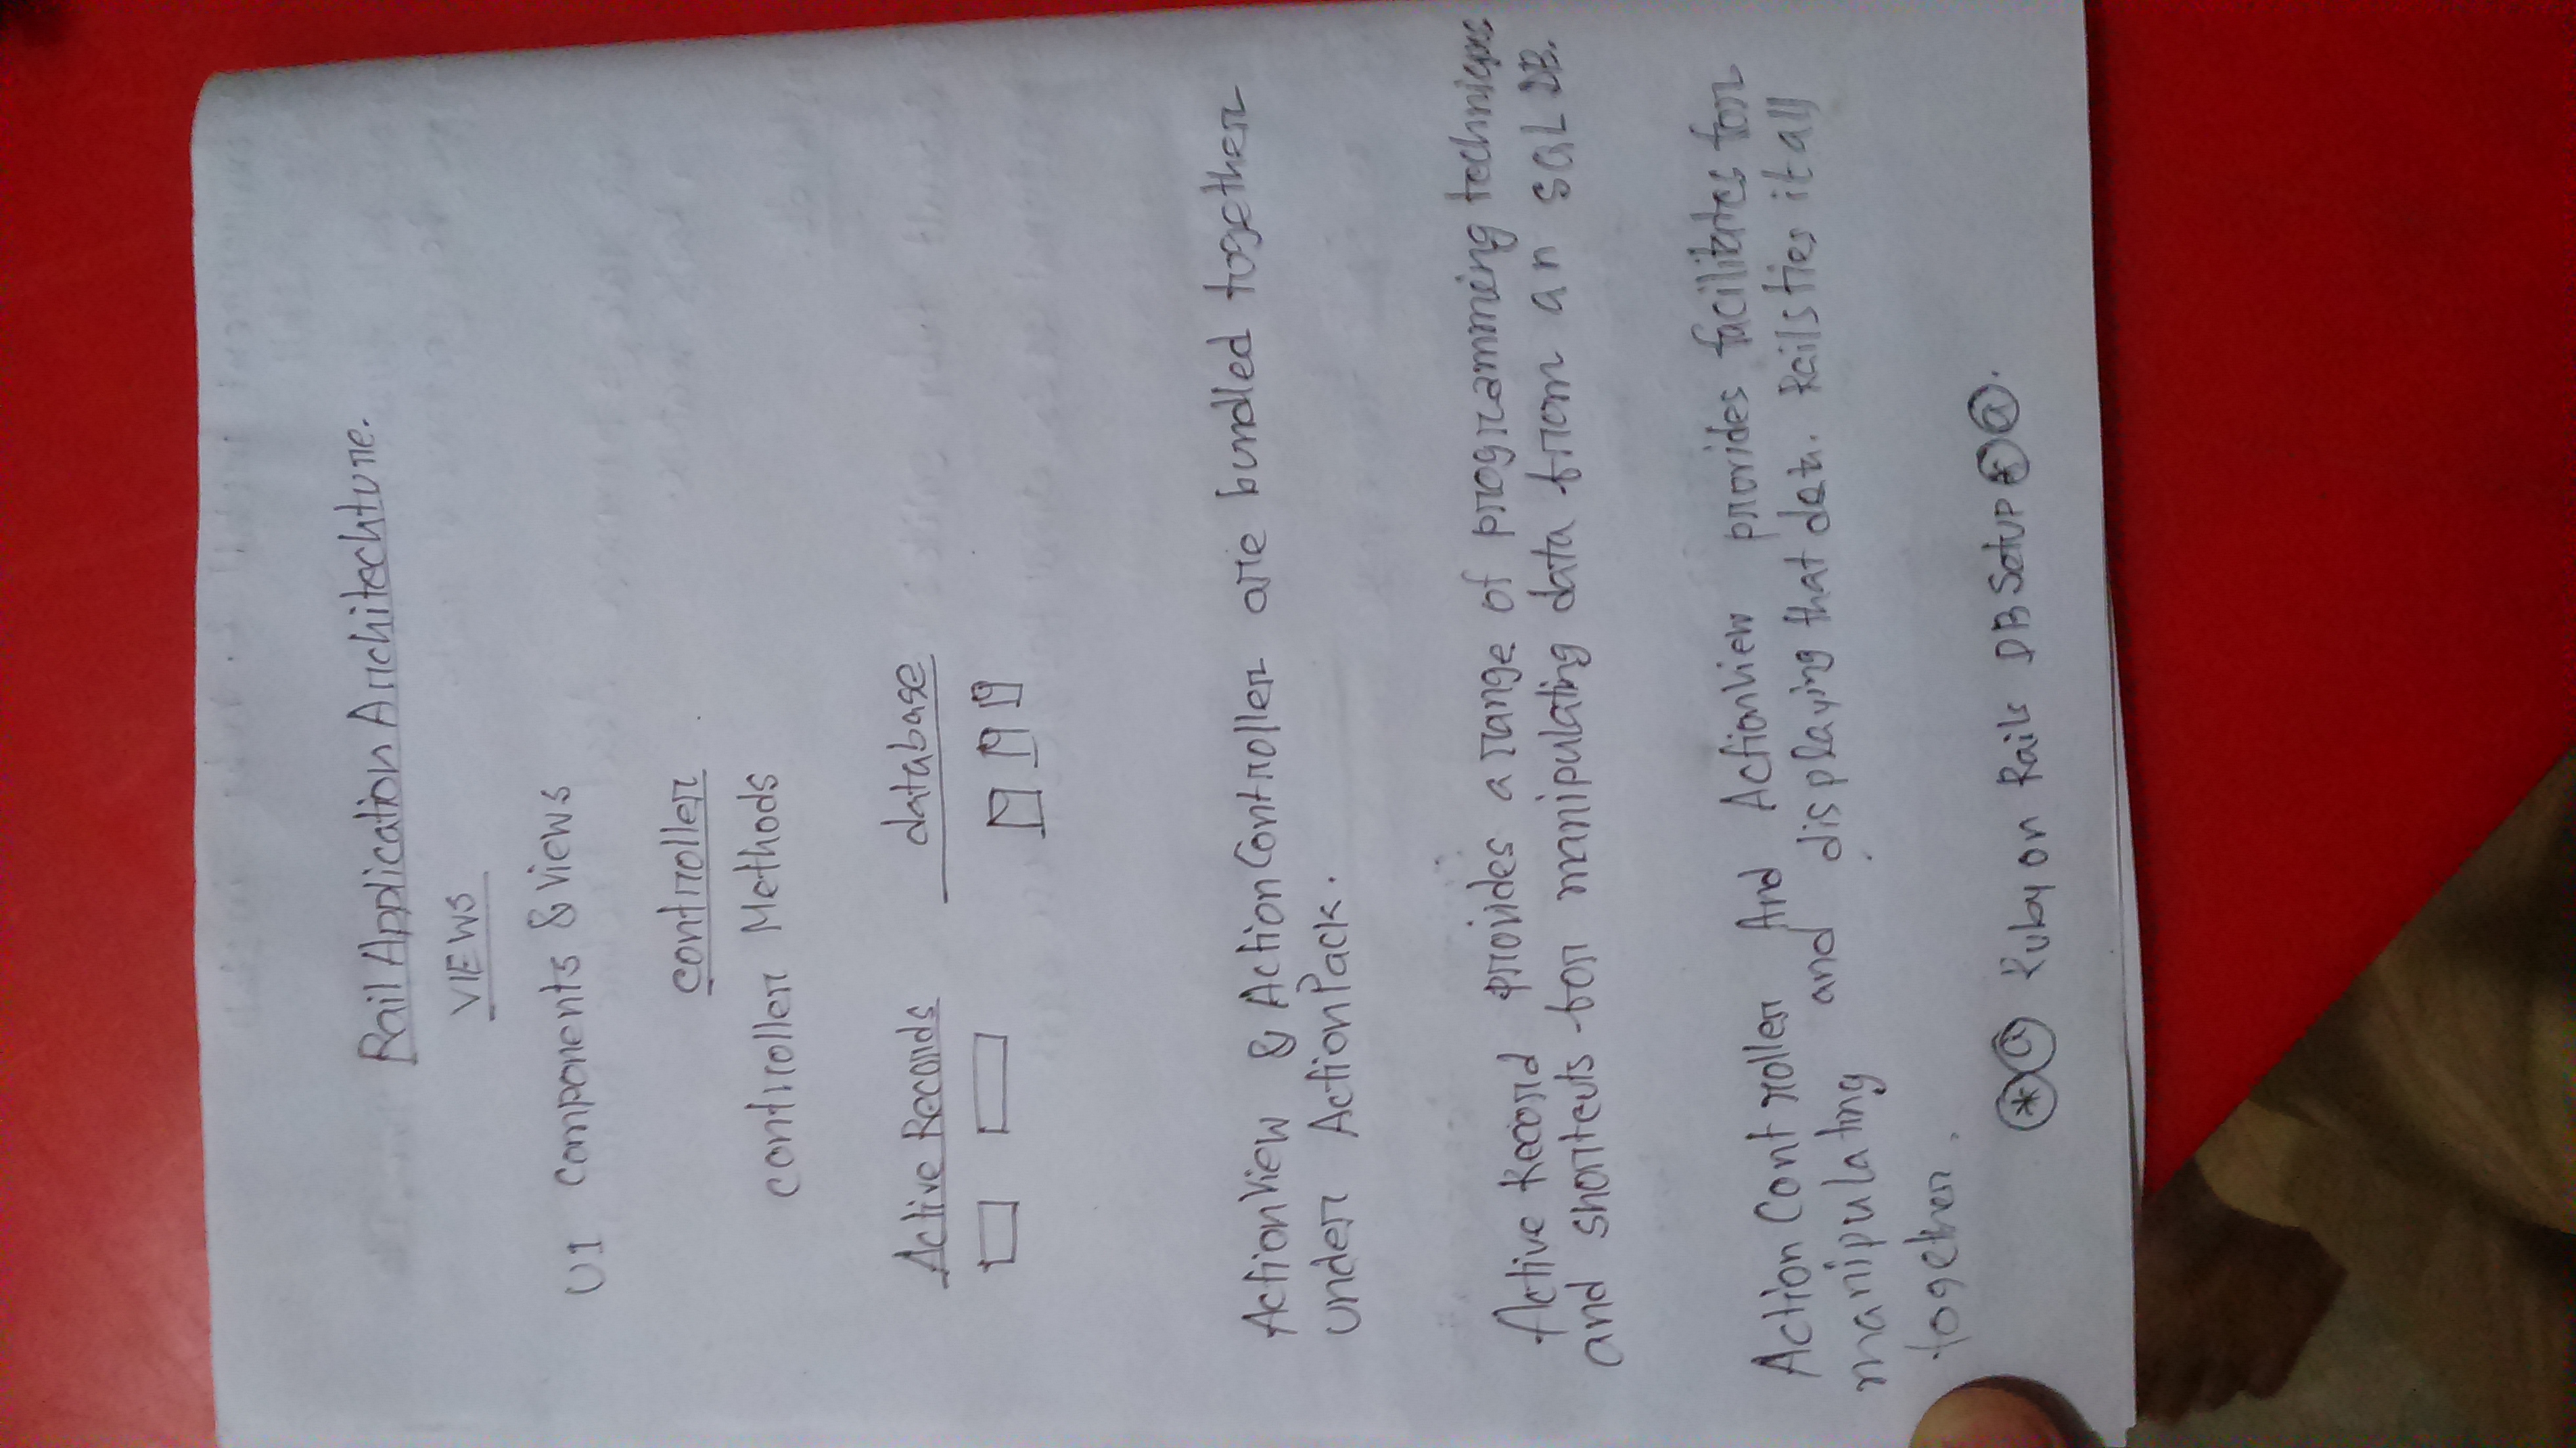 Rail Application Architechture.
VIEWS
UI Components & Views
controller
controller Methods
Active Records database
ActionView & ActionController are bundled together
under ActionPack.
Active Record provides a range of programming techniques
and shortcuts for manipulating data from an SQL DB.
Action Controller And ActionView provides facilitates for
manipulating and displaying that data. Rails ties it all
together.
* @ Ruby on Rails DB Setup * @.